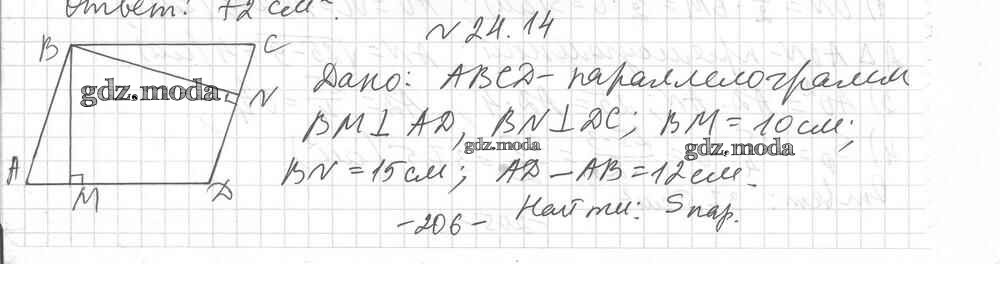 Ответ: 72 см².
N 24.14
B C
Дано: ABCD - параллелограмм
gdz.moda N
BM ⊥ AD, BN ⊥ DC; BM = 10 см;
gdz.moda gdz.moda
A M D
BN = 15 см; AD - AB = 12 см.
Найти: Sпар.
- 206 -